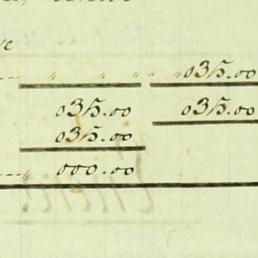 035.00
035.00 035.00
035.00
000.00